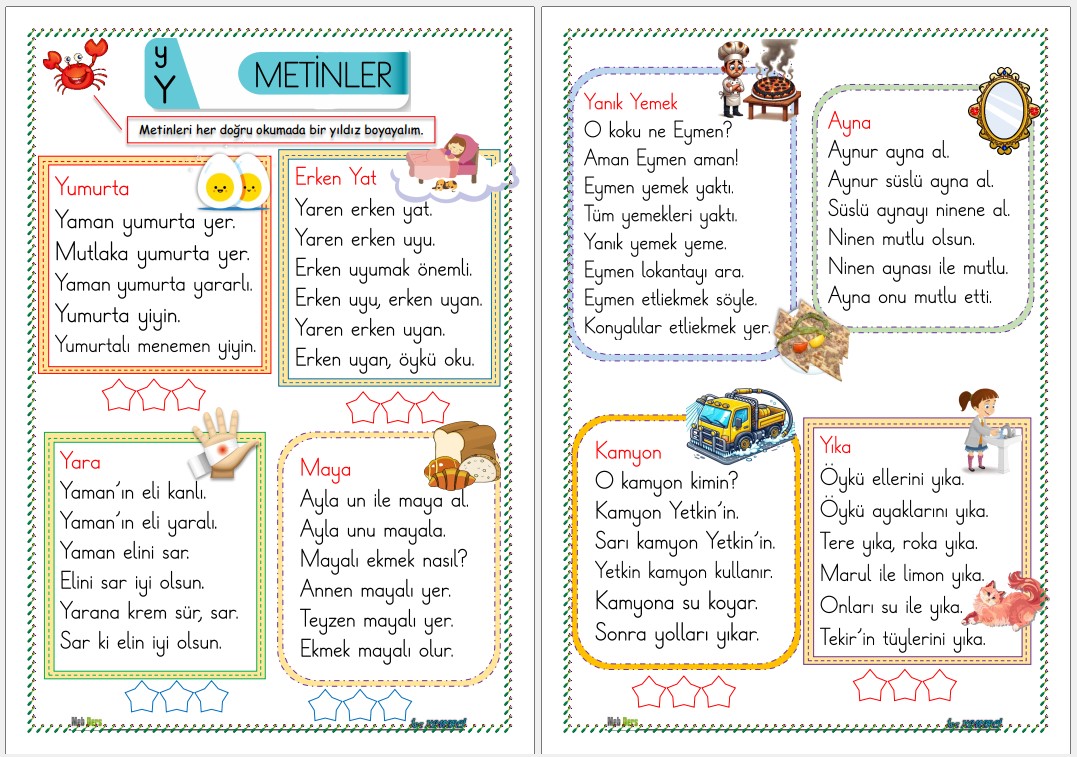 y
Y
METİNLER
Metinleri her doğru okumada bir yıldız boyayalım.
Yumurta
Yaman yumurta yer.
Mutlaka yumurta yer.
Yaman yumurta yararlı.
Yumurta yiyin.
Yumurtalı menemen yiyin.
Erken Yat
Yaren erken yat.
Yaren erken uyu.
Erken uyumak önemli.
Erken uyu, erken uyan.
Yaren erken uyan.
Erken uyan, öykü oku.
Yara
Yaman’ın eli kanlı.
Yaman’ın eli yaralı.
Yaman elini sar.
Elini sar iyi olsun.
Yarana krem sür, sar.
Sar ki elin iyi olsun.
Maya
Ayla un ile maya al.
Ayla unu mayala.
Mayalı ekmek nasıl?
Annen mayalı yer.
Teyzen mayalı yer.
Ekmek mayalı olur.
Yanık Yemek
O koku ne Eymen?
Aman Eymen aman!
Eymen yemek yaktı.
Tüm yemekleri yaktı.
Yanık yemek yeme.
Eymen lokantayı ara.
Eymen etliekmek söyle.
Konyalılar etliekmek yer.
Ayna
Aynur ayna al.
Aynur süslü ayna al.
Süslü aynayı ninene al.
Ninen mutlu olsun.
Ninen aynası ile mutlu.
Ayna onu mutlu etti.
Kamyon
O kamyon kimin?
Kamyon Yetkin’in.
Sarı kamyon Yetkin’in.
Yetkin kamyon kullanır.
Kamyona su koyar.
Sonra yolları yıkar.
Yıka
Öykü ellerini yıka.
Öykü ayaklarını yıka.
Tere yıka, roka yıka.
Marul ile limon yıka.
Onları su ile yıka.
Tekir’in tüylerini yıka.